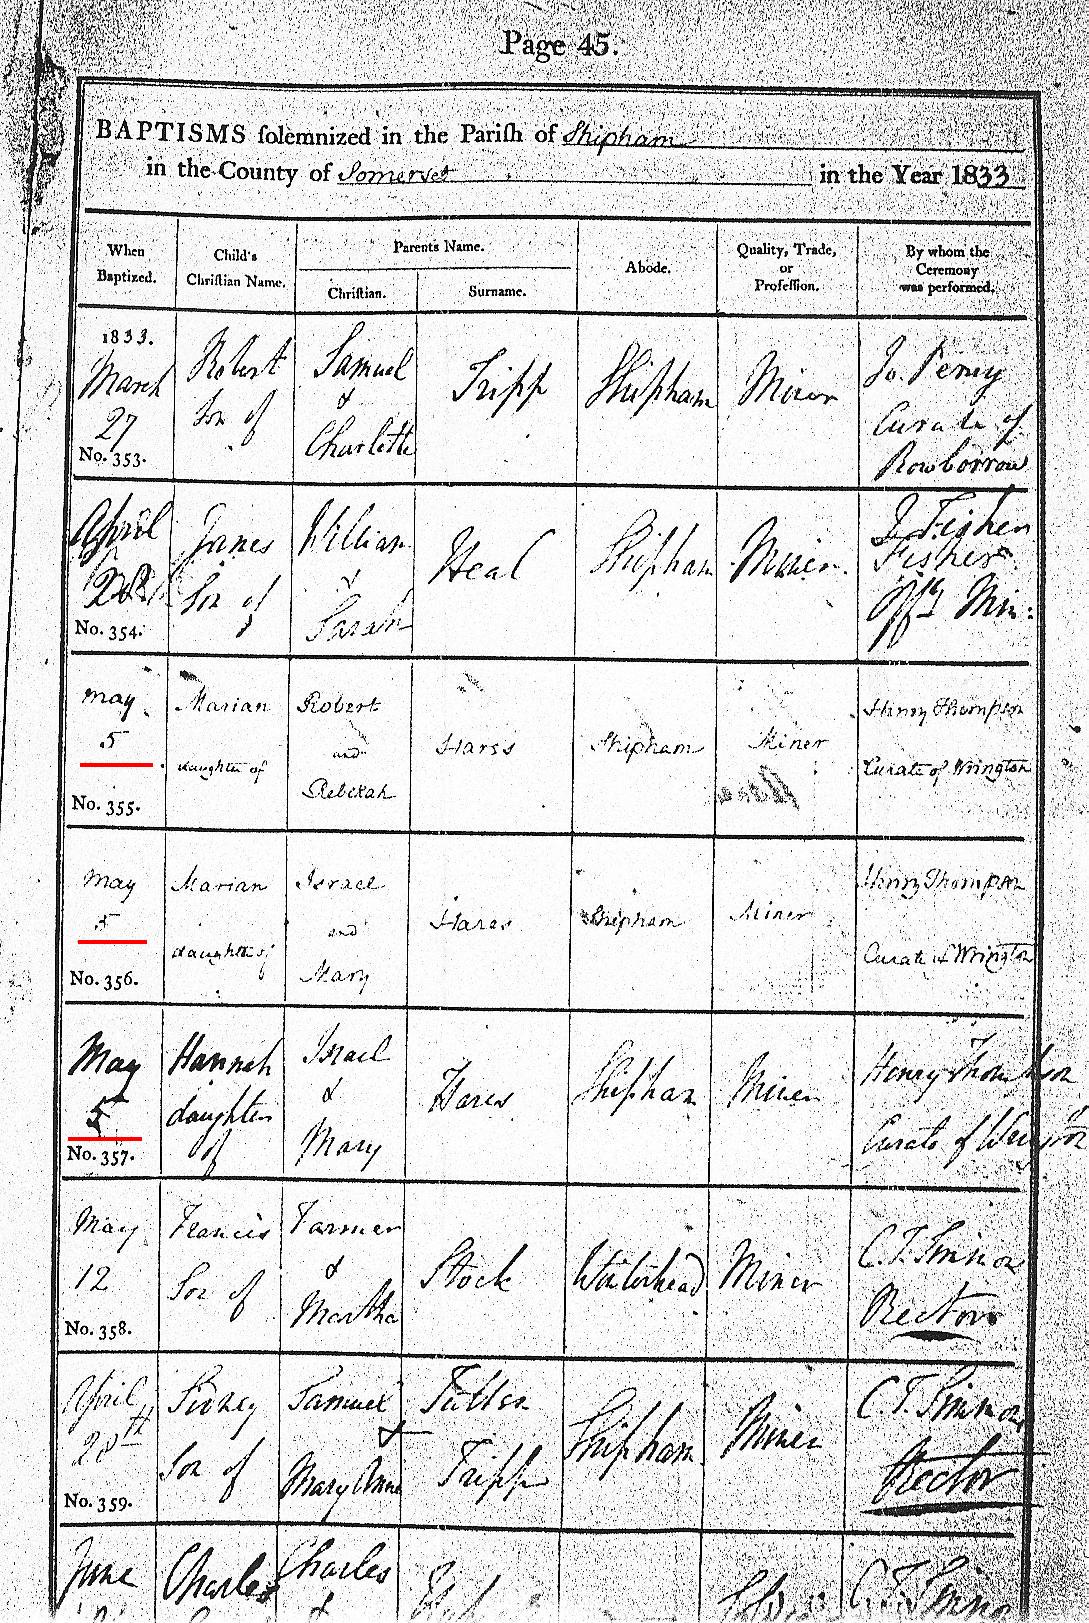 Page 45.
BAPTISMS solemnized in the Parish of Shipham
in the County of Somerset in the Year 1833
When Baptized.
Child's Christian Name.
Parents Name.
Christian.
Surname.
Abode.
Quality, Trade, or Profession.
By whom the Ceremony was performed.
1833.
March
27
No. 353.
Robert
Son of
Samuel
&
Charlotte
Tripp
Shipham
Miner
Jo. Perney
Curate of
Rowborrow
April
28
No. 354.
James
Son of
William
&
Sarah
Heal
Shipham
Miner
Fisher
Offg Min:
May
5
No. 355.
Marian
daughter of
Robert
and
Rebekah
Hares
Shipham
Miner
Henry Thompson
Curate of Wrington
May
5
No. 356.
Marian
daughter of
Israel
and
Mary
Hares
Shipham
Miner
Henry Thompson
Curate of Wrington
May
5
No. 357.
Hannah
daughter
of
Israel
&
Mary
Hares
Shipham
Miner
Henry Thompson
Curate of Wrington
May
12
No. 358.
Francis
Son of
Farmer
&
Martha
Stock
Winterhead
Miner
C. T. Simmons
Rector
April
28th
No. 359.
Sidney
Son of
Samuel
&
Mary Anne
Fuller
Tripp
Shipham
Miner
C. T. Simmons
Rector
June
Charles
Charles
&
C. T. Simmons